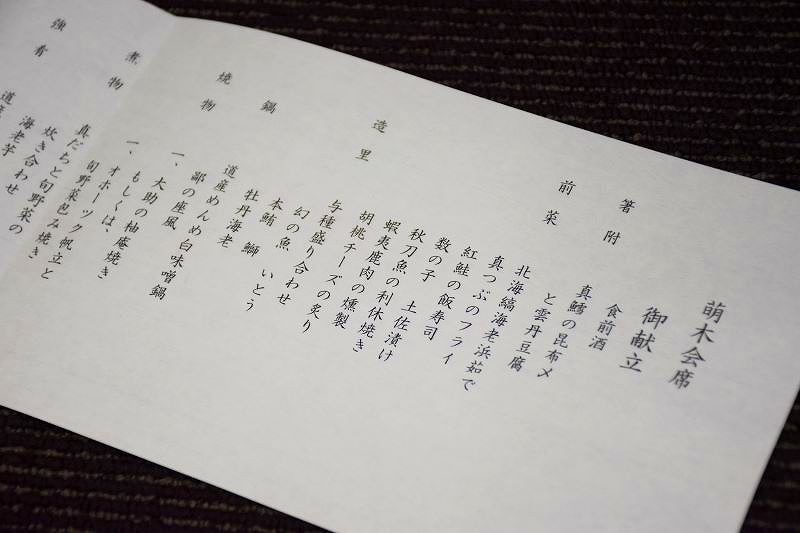 萌木会席
御献立
箸附
食前酒
真鱈の昆布〆
と雲丹豆腐
前菜
北海縞海老浜茹で
真つぶのフライ
紅鮭の飯寿司
数の子　土佐漬け
秋刀魚の利休焼き
蝦夷鹿肉の燻製
胡桃チーズの炙り
造里
与種盛り合わせ
幻の魚　いとう
本鮪　鰤
牡丹海老
鍋
道産めんめ白味噌鍋
焼物
一、鄙の座風
大助の柚庵焼き
一、もしくは、
オホーツク帆立と
旬野菜包み焼き
煮物
真だちと旬野菜の
炊き合わせ
海老芋
強肴
道産